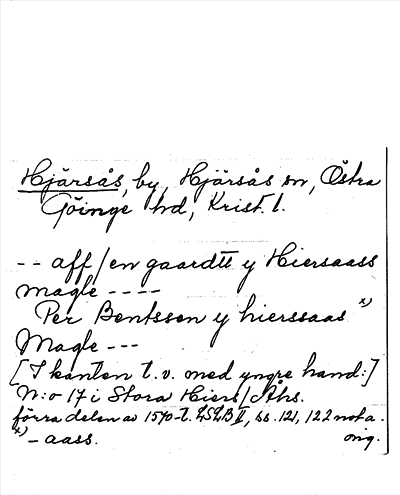 Hjärsås, by, Hjärsås sn, Östra
Göinge hd, Krist. l.
-- aff/en gaardtt y Hiersaass
magle ----
Per Bentsson y hierssaas x)
Magle ---
[I kanten t.v. med yngre hand:]
N:o 17 i Stora Hiers/Åhs.
förra delen av 1570-t. LSLB II, ss. 121, 122 nota.
x) -aass. orig.